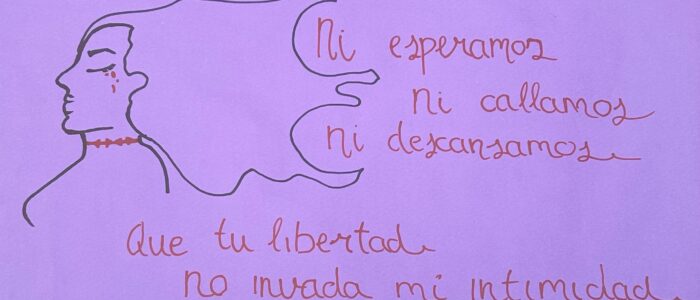 Ni esperamos
ni callamos
ni descansamos
Que tu libertad
no invada mi intimidad